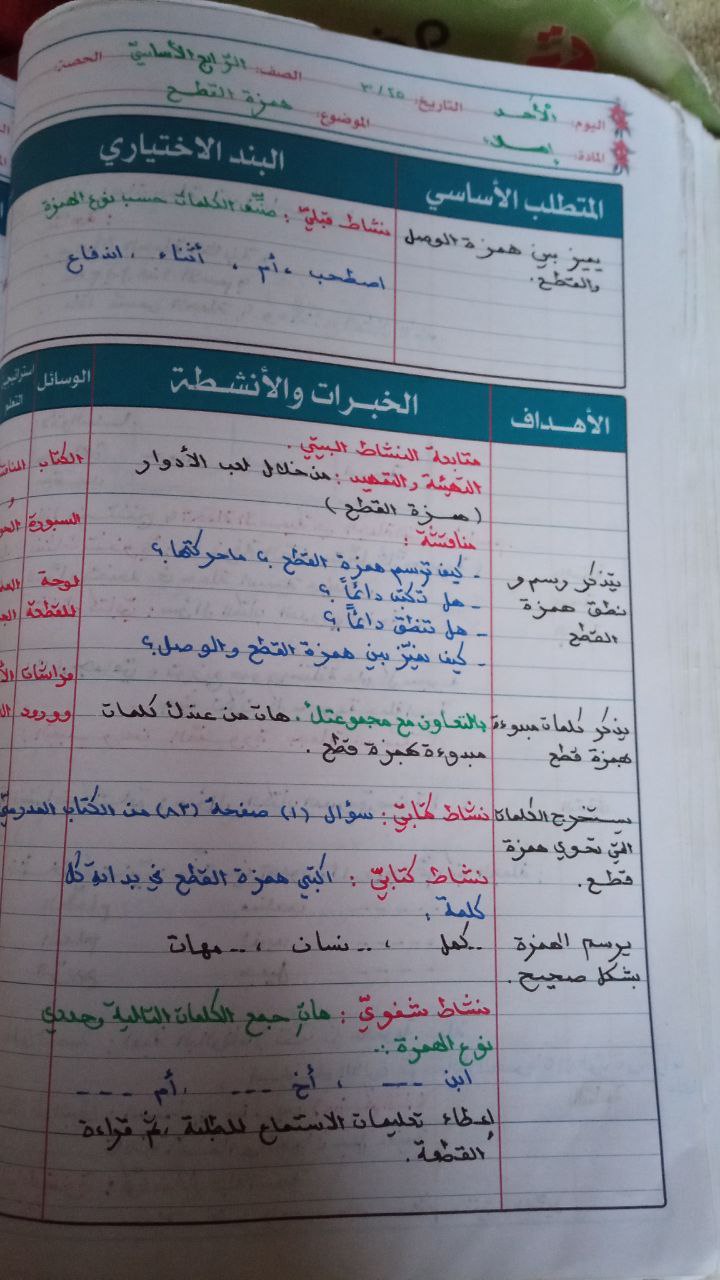 اليوم: الأحد التاريخ: ٣/٢٥ الصف: الرابع الأساسي الحصة:
المادة: إملاء الموضوع: همزة القطع
المتطلب الأساسي البند الاختياري
يميز بين همزة الوصل
والقطع.
نشاط قبليّ: صنّف الكلمات حسب نوع الهمزة
اصطحب ، أم ، أثناء ، اندفاع
الأهداف الخبرات والأنشطة الوسائل
متابعة النشاط البيتي.
التهيئة والتمهيد: من خلال لعب الأدوار
(همزة القطع)
مناقشة:
يتذكر رسم و
نطق همزة
القطع.
- كيف ترسم همزة القطع ؟ ما حركتها ؟
- هل تكتب دائماً ؟
- هل تنطق دائماً ؟
- كيف نميّز بين همزة القطع والوصل ؟
يذكر كلمات مبدوءة
بهمزة قطع
بالتعاون مع مجموعتك، هات من عندك كلمات
مبدوءة بهمزة قطع.
يستخرج الكلمات
التي تحوي همزة
قطع.
نشاط كتابيّ: سؤال (١) صفحة (٨٣) من الكتاب المدرسي
نشاط كتابيّ: اكتبي همزة القطع في بداية كل
كلمة:
يرسم الهمزة
بشكل صحيح.
..كمل ، ..نسان ، ..مهات
نشاط شفويّ: هات جمع الكلمات التالية وحددي
نوع الهمزة:
ابن --- ، أخ --- ، أم ----
إعطاء تعليمات الاستماع للطلبة ثم قراءة
القطعة.
الكتاب
و
السبورة
لوحة
للقطعة
فراشات
وورود